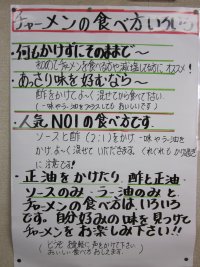 チャーメンの食べ方いろいろ
・何もかけずにそのままで〜
初めてチャーメンを食べる方や減塩してる方に、オススメ!
・あっさり味を好むなら〜
酢をかけてよ〜く混ぜてから食べて下さい。
(一味やラー油をプラスしてもおいしいです)
・人気NO1の食べ方です.
ソースと酢(2:1)をかけ一味やラー油を
かけよ〜く混ぜていただきます。(くれぐれもかけ過ぎ
に注意です!
・正油をかけたり、酢と正油・
ソースのみ・ラー油のみと
チャーメンの食べ方はいろいろ
です。自分好みの味を見つけて
チャーメンをお楽しみ下さい!!
(ど〜ぞ気軽に声をかけて下さい
おいしい食べ方おしえます。)